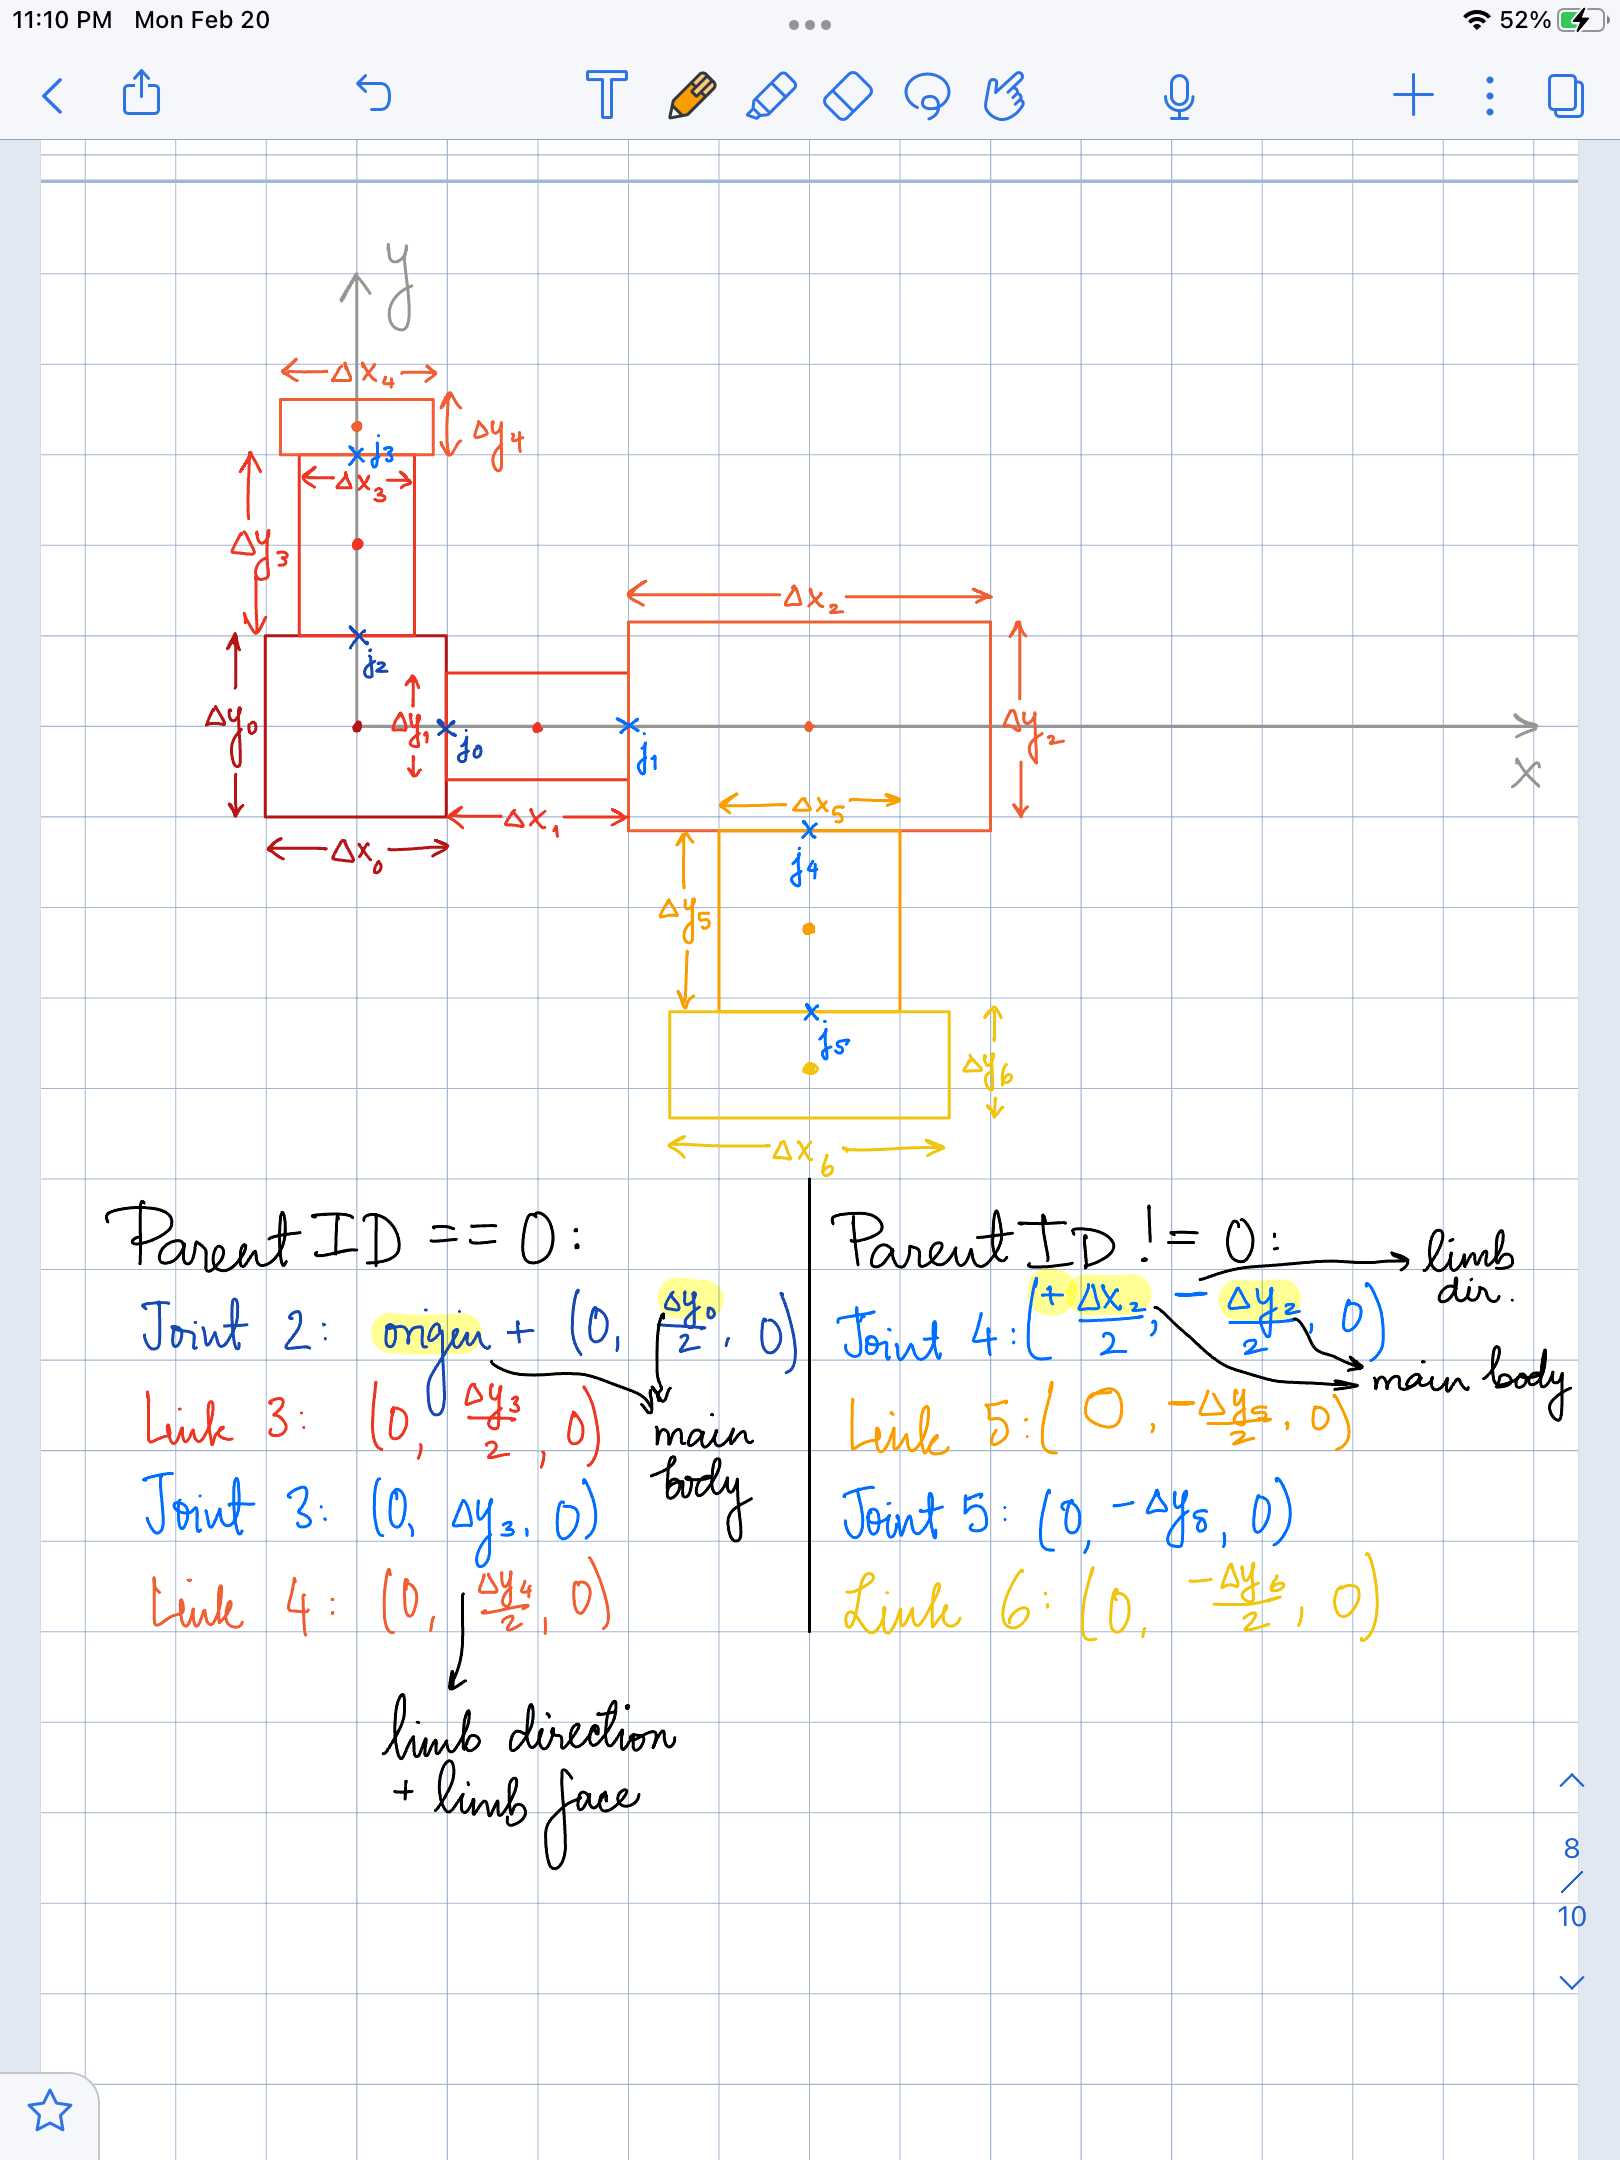 11:10 PM Mon Feb 20
52%
y
Δx₄
Δy₄
j3
Δx₃
Δy₃
Δx₂
j2
Δy₀
Δy₁
j0
j1
Δy₂
x
Δx₅
Δx₁
Δx₀
j4
Δy₅
j5
Δy₆
Δx₆
Parent ID == 0:
Joint 2: origin + (0, Δy₀/2, 0)
Link 3: (0, Δy₃/2, 0)
main
body
Joint 3: (0, Δy₃, 0)
Link 4: (0, Δy₄/2, 0)
limb direction
+ limb face
Parent ID != 0:
limb
dir.
Joint 4: (+Δx₂/2, -Δy₂/2, 0)
main body
Link 5: (0, -Δy₅/2, 0)
Joint 5: (0, -Δy₅, 0)
Link 6: (0, -Δy₆/2, 0)
8
/
10